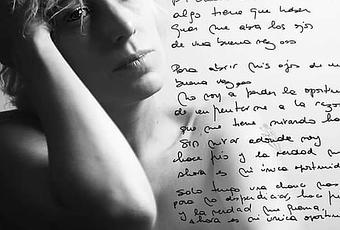 algo tiene que haber
que me abra los ojos
de una buena vez
Para abrir mis ojos de una
buena vez
No voy a perder la oportuni
de enfrentarme a la razón
que me tiene mirando ha
Sin mirar adonde voy
hace frío y la verdad
ahora es mi única oportunid
Solo tengo una chance mas
para no desperdiciar, hace frío
y la verdad me quema,
ahora es mi única oportun